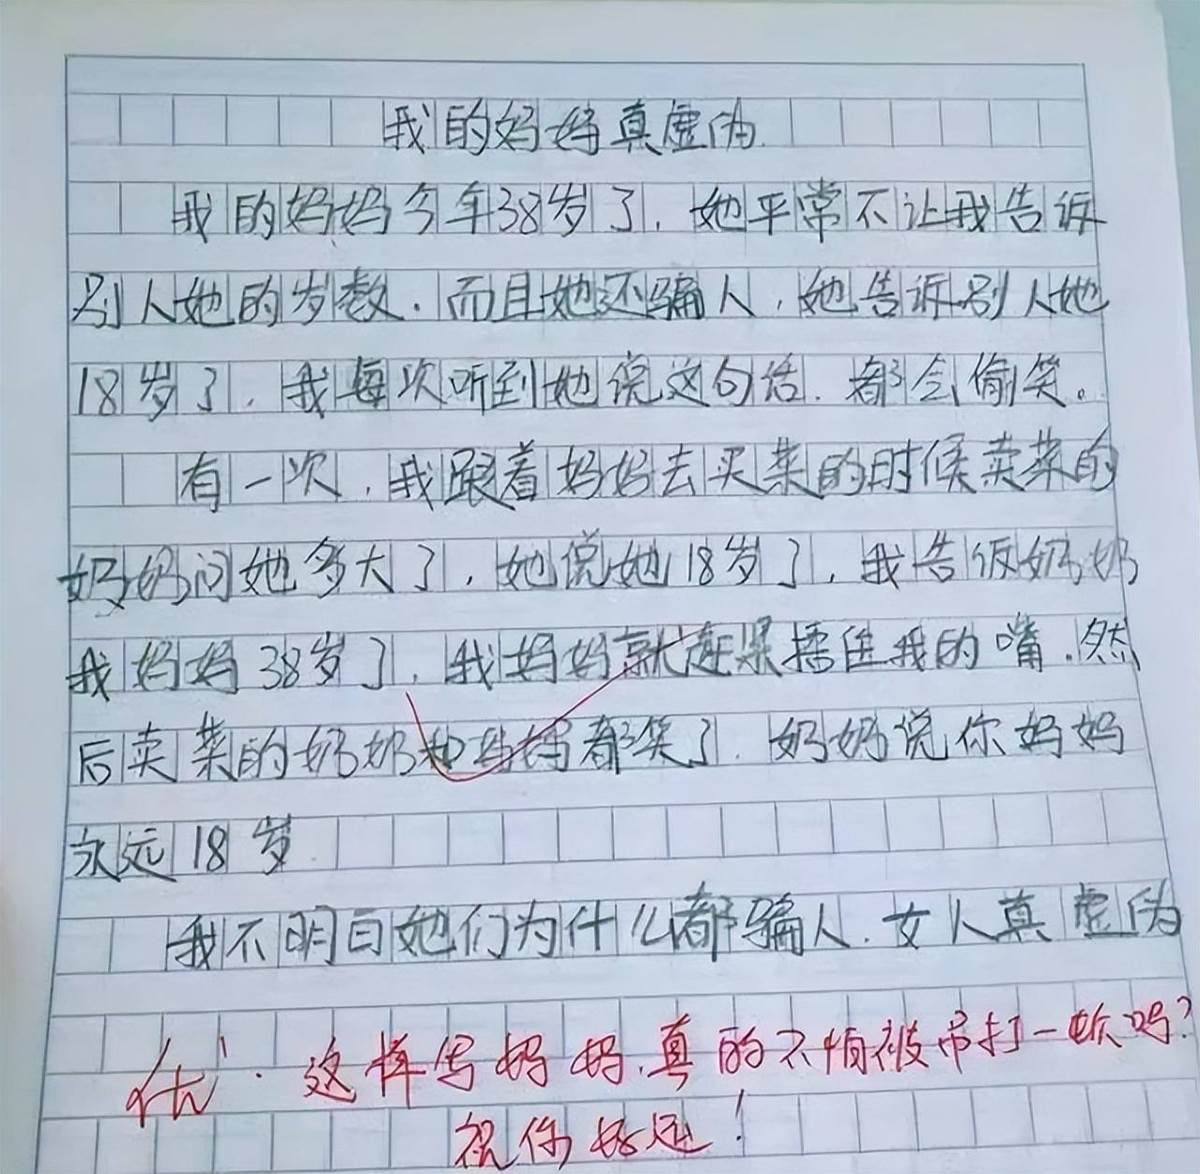 我的妈妈真虚伪.
我的妈妈今年38岁了，她平常不让我告诉
别人她的岁数.而且她还骗人，她告诉别人她
18岁了.我每次听到她说这句话.都会偷笑。
有一次，我跟着妈妈去买菜的时候卖菜的
奶奶问她多大了，她说她18岁了，我告诉奶奶
我妈妈38岁了，我妈妈就赶紧捂住我的嘴.然
后卖菜的奶奶和妈妈都笑了.奶奶说你妈妈
永远18岁
我不明白她们为什么都骗人.女人真虚伪
优.这样写妈妈,真的不怕被吊打一顿吗?
祝你好运!